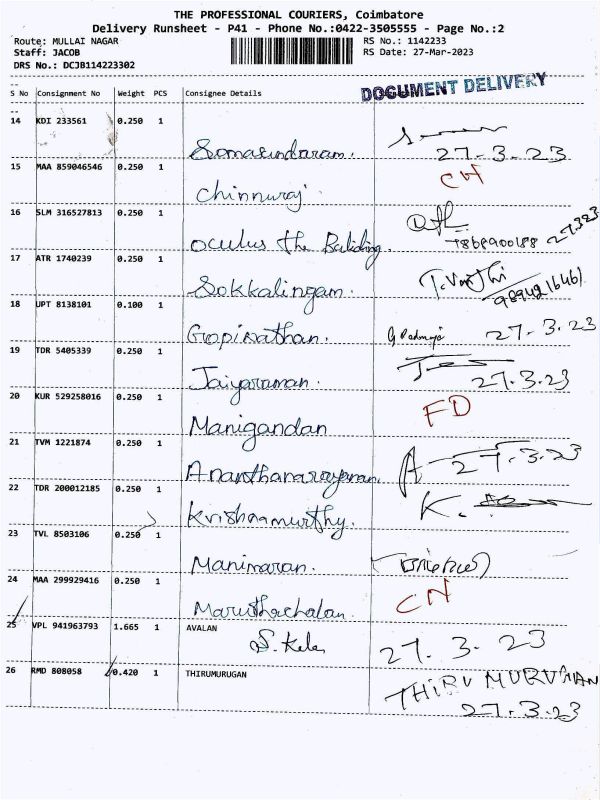 THE PROFESSIONAL COURIERS, Coimbatore
Delivery Runsheet - P41 - Phone No.:0422-3505555 - Page No.:2
Route: MULLAI NAGAR RS No.: 1142233
Staff: JACOB RS Date: 27-Mar-2023
DRS No.: DCJB114223302
DOCUMENT DELIVERY
S No Consignment No Weight PCS Consignee Details
14 KDI 233561 0.250 1
Somasundaram. 27-3.23
15 MAA 859046546 0.250 1 CN
Chinnuraj.
16 SLM 316527813 0.250 1
oculus the Building 7868900188 27.3.23
17 ATR 1740239 0.250 1
Sokkalingam. 9894216461
18 UPT 8138101 0.100 1
Gopinathan. G Padmaja 27-3.23
19 TDR 5405339 0.250 1
Jaiyaraman. 27.3.23
20 KUR 529258016 0.250 1 FD
Manigandan
21 TVM 1221874 0.250 1
Ananthanarayanan. 27.3.23
22 TDR 200012185 0.250 1 K.
Krishnamurthy.
23 TVL 8503106 0.250 1
Manimaran.
24 MAA 299929416 0.250 1 CN
Maruthachalan.
25 VPL 941963793 1.665 1 AVALAN
S. Kala 27. 3. 23
26 RMD 808058 0.420 1 THIRUMURUGAN
THIRUMURUGAN
27.3.23